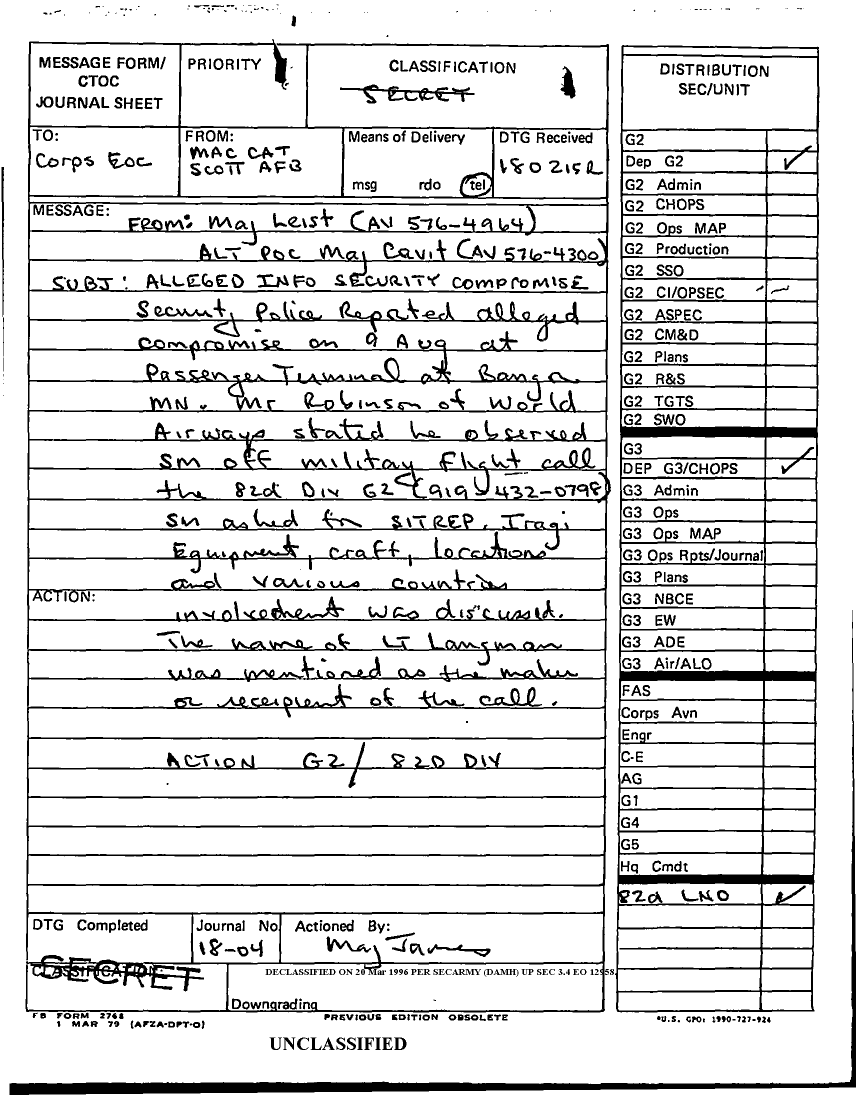 MESSAGE FORM/
CTOC
JOURNAL SHEET
PRIORITY
CLASSIFICATION
SECRET
TO:
Corps EOC
FROM:
MAC CAT
SCOTT AFB
Means of Delivery
msg rdo tel
DTG Received
180215R
MESSAGE:
FROM: Maj Leist (AV 576-4964)
ALT POC Maj Cavit (AV 576-4300)
SUBJ: ALLEGED INFO SECURITY COMPROMISE
Security Police Reported alleged
compromise on 9 Aug at
Passenger Terminal at Bangor
MN. Mr Robinson of World
Airways stated he observed
SM off military flight call
the 82d Div G2 (919-432-0798)
SM asked for SITREP. Iraqi
Equipment, craft, locations
and various countries
ACTION:
involvement was discussed.
The name of LT Langman
was mentioned as the maker
or receipient of the call.
ACTION G2/ 82D DIV
DTG Completed
Journal No
18-04
Actioned By:
Maj James
CLASSIFICATION:
SECRET
DECLASSIFIED ON 20 Mar 1996 PER SECARMY (DAMH) UP SEC 3.4 EO 12958.
Downgrading
FB FORM 2768
1 MAR 79 (AFZA-DPT-O)
PREVIOUS EDITION OBSOLETE
UNCLASSIFIED
DISTRIBUTION
SEC/UNIT
G2
Dep G2 ✓
G2 Admin
G2 CHOPS
G2 Ops MAP
G2 Production
G2 SSO
G2 CI/OPSEC
G2 ASPEC
G2 CM&D
G2 Plans
G2 R&S
G2 TGTS
G2 SWO
G3
DEP G3/CHOPS ✓
G3 Admin
G3 Ops
G3 Ops MAP
G3 Ops Rpts/Journal
G3 Plans
G3 NBCE
G3 EW
G3 ADE
G3 Air/ALO
FAS
Corps Avn
Engr
C-E
AG
G1
G4
G5
Hq Cmdt
82d LNO ✓
*U.S. GPO: 1990-727-924